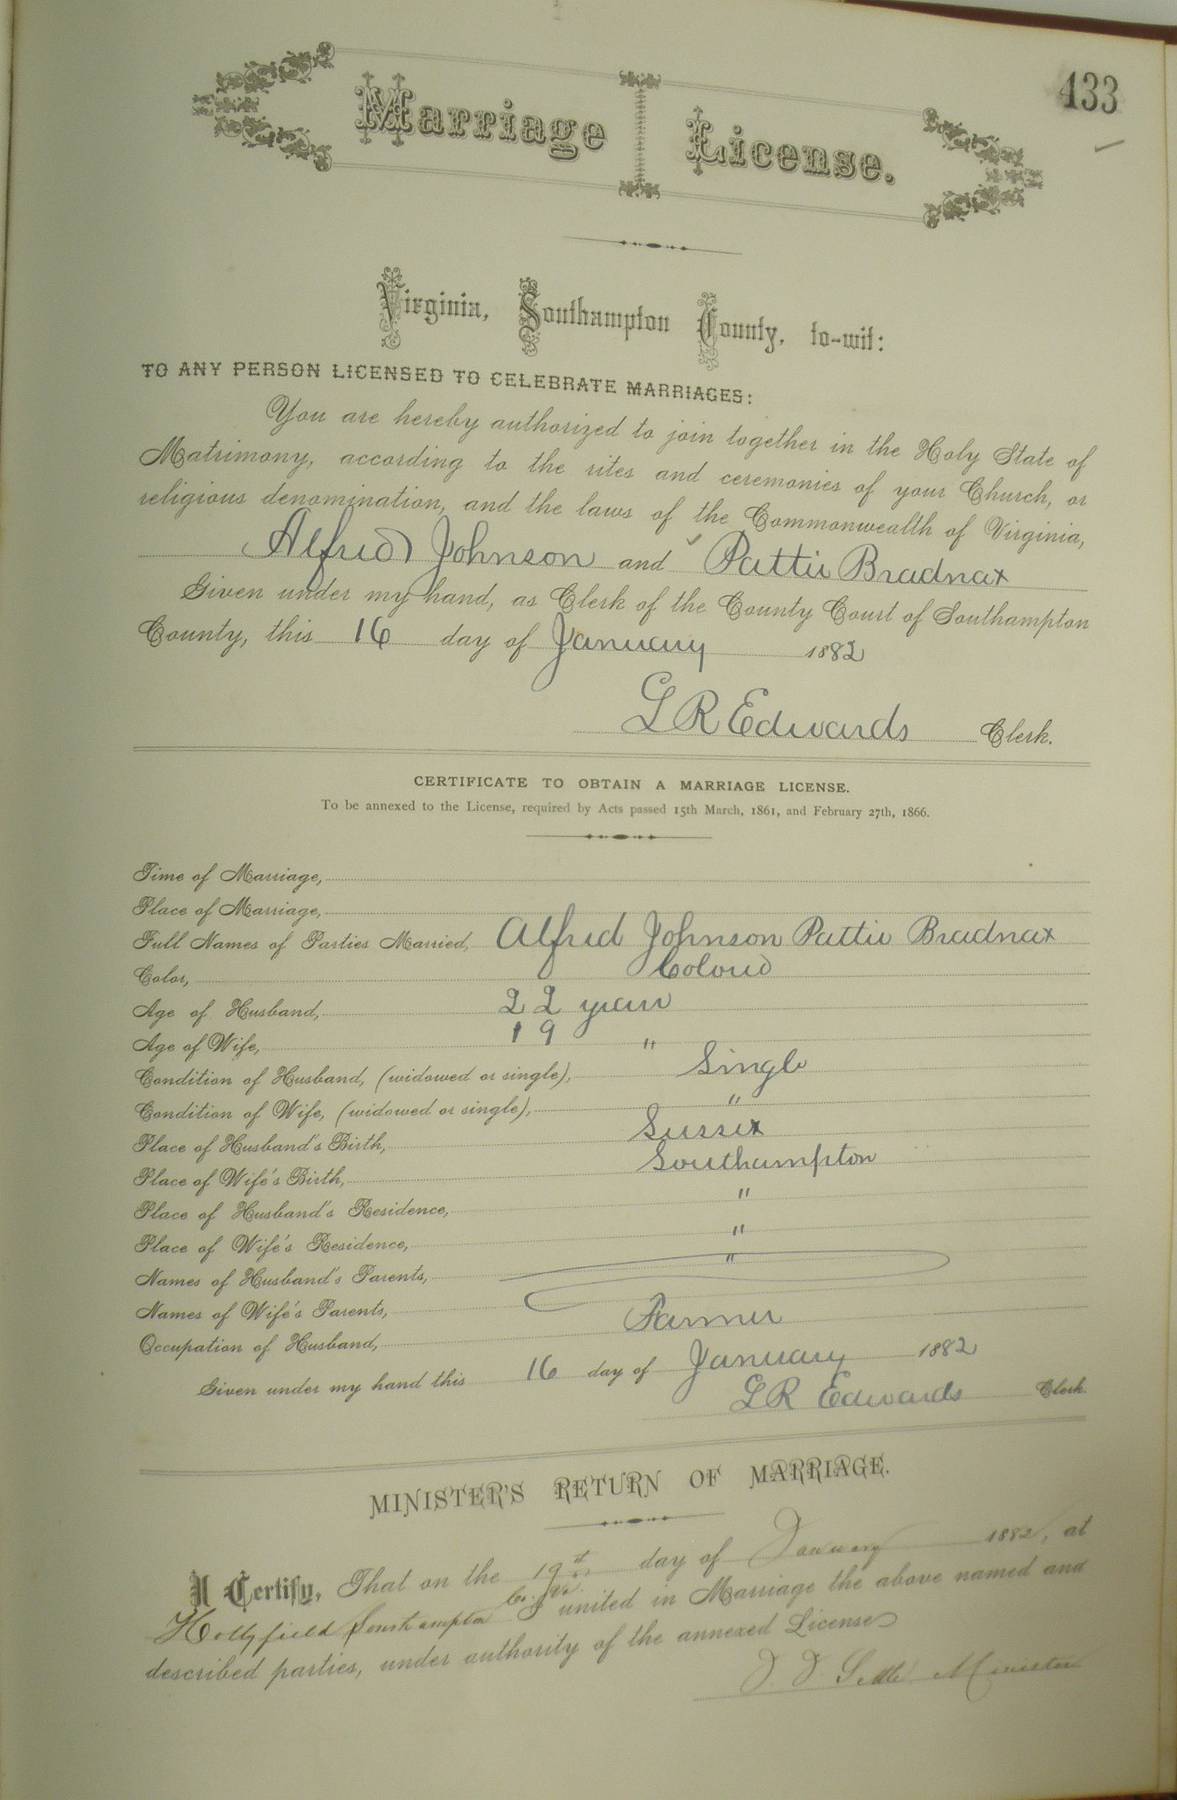 433
Marriage License.
Virginia, Southampton County, to-wit:
TO ANY PERSON LICENSED TO CELEBRATE MARRIAGES:
You are hereby authorized to join together in the Holy State of
Matrimony, according to the rites and ceremonies of your Church, or
religious denomination, and the laws of the Commonwealth of Virginia,
Alfred Johnson and Pattie Bradnax
Given under my hand, as Clerk of the County Court of Southampton
County, this 16 day of January 1882
L R Edwards Clerk.
CERTIFICATE TO OBTAIN A MARRIAGE LICENSE.
To be annexed to the License, required by Acts passed 15th March, 1861, and February 27th, 1866.
Time of Marriage,
Place of Marriage,
Full Names of Parties Married, Alfred Johnson Pattie Bradnax
Color, Colored
Age of Husband, 22 years
Age of Wife, 19 "
Condition of Husband, (widowed or single), Single
Condition of Wife, (widowed or single), "
Place of Husband's Birth, Sussex
Place of Wife's Birth, Southampton
Place of Husband's Residence, "
Place of Wife's Residence, "
Names of Husband's Parents, "
Names of Wife's Parents,
Occupation of Husband, Farmer
Given under my hand this 16 day of January 1882
L R Edwards Clerk.
MINISTER'S RETURN OF MARRIAGE.
I Certify, That on the 19 day of January 1882, at
Hollyfield Southampton Co. Va. I united in Marriage the above named and
described parties, under authority of the annexed License
Minister